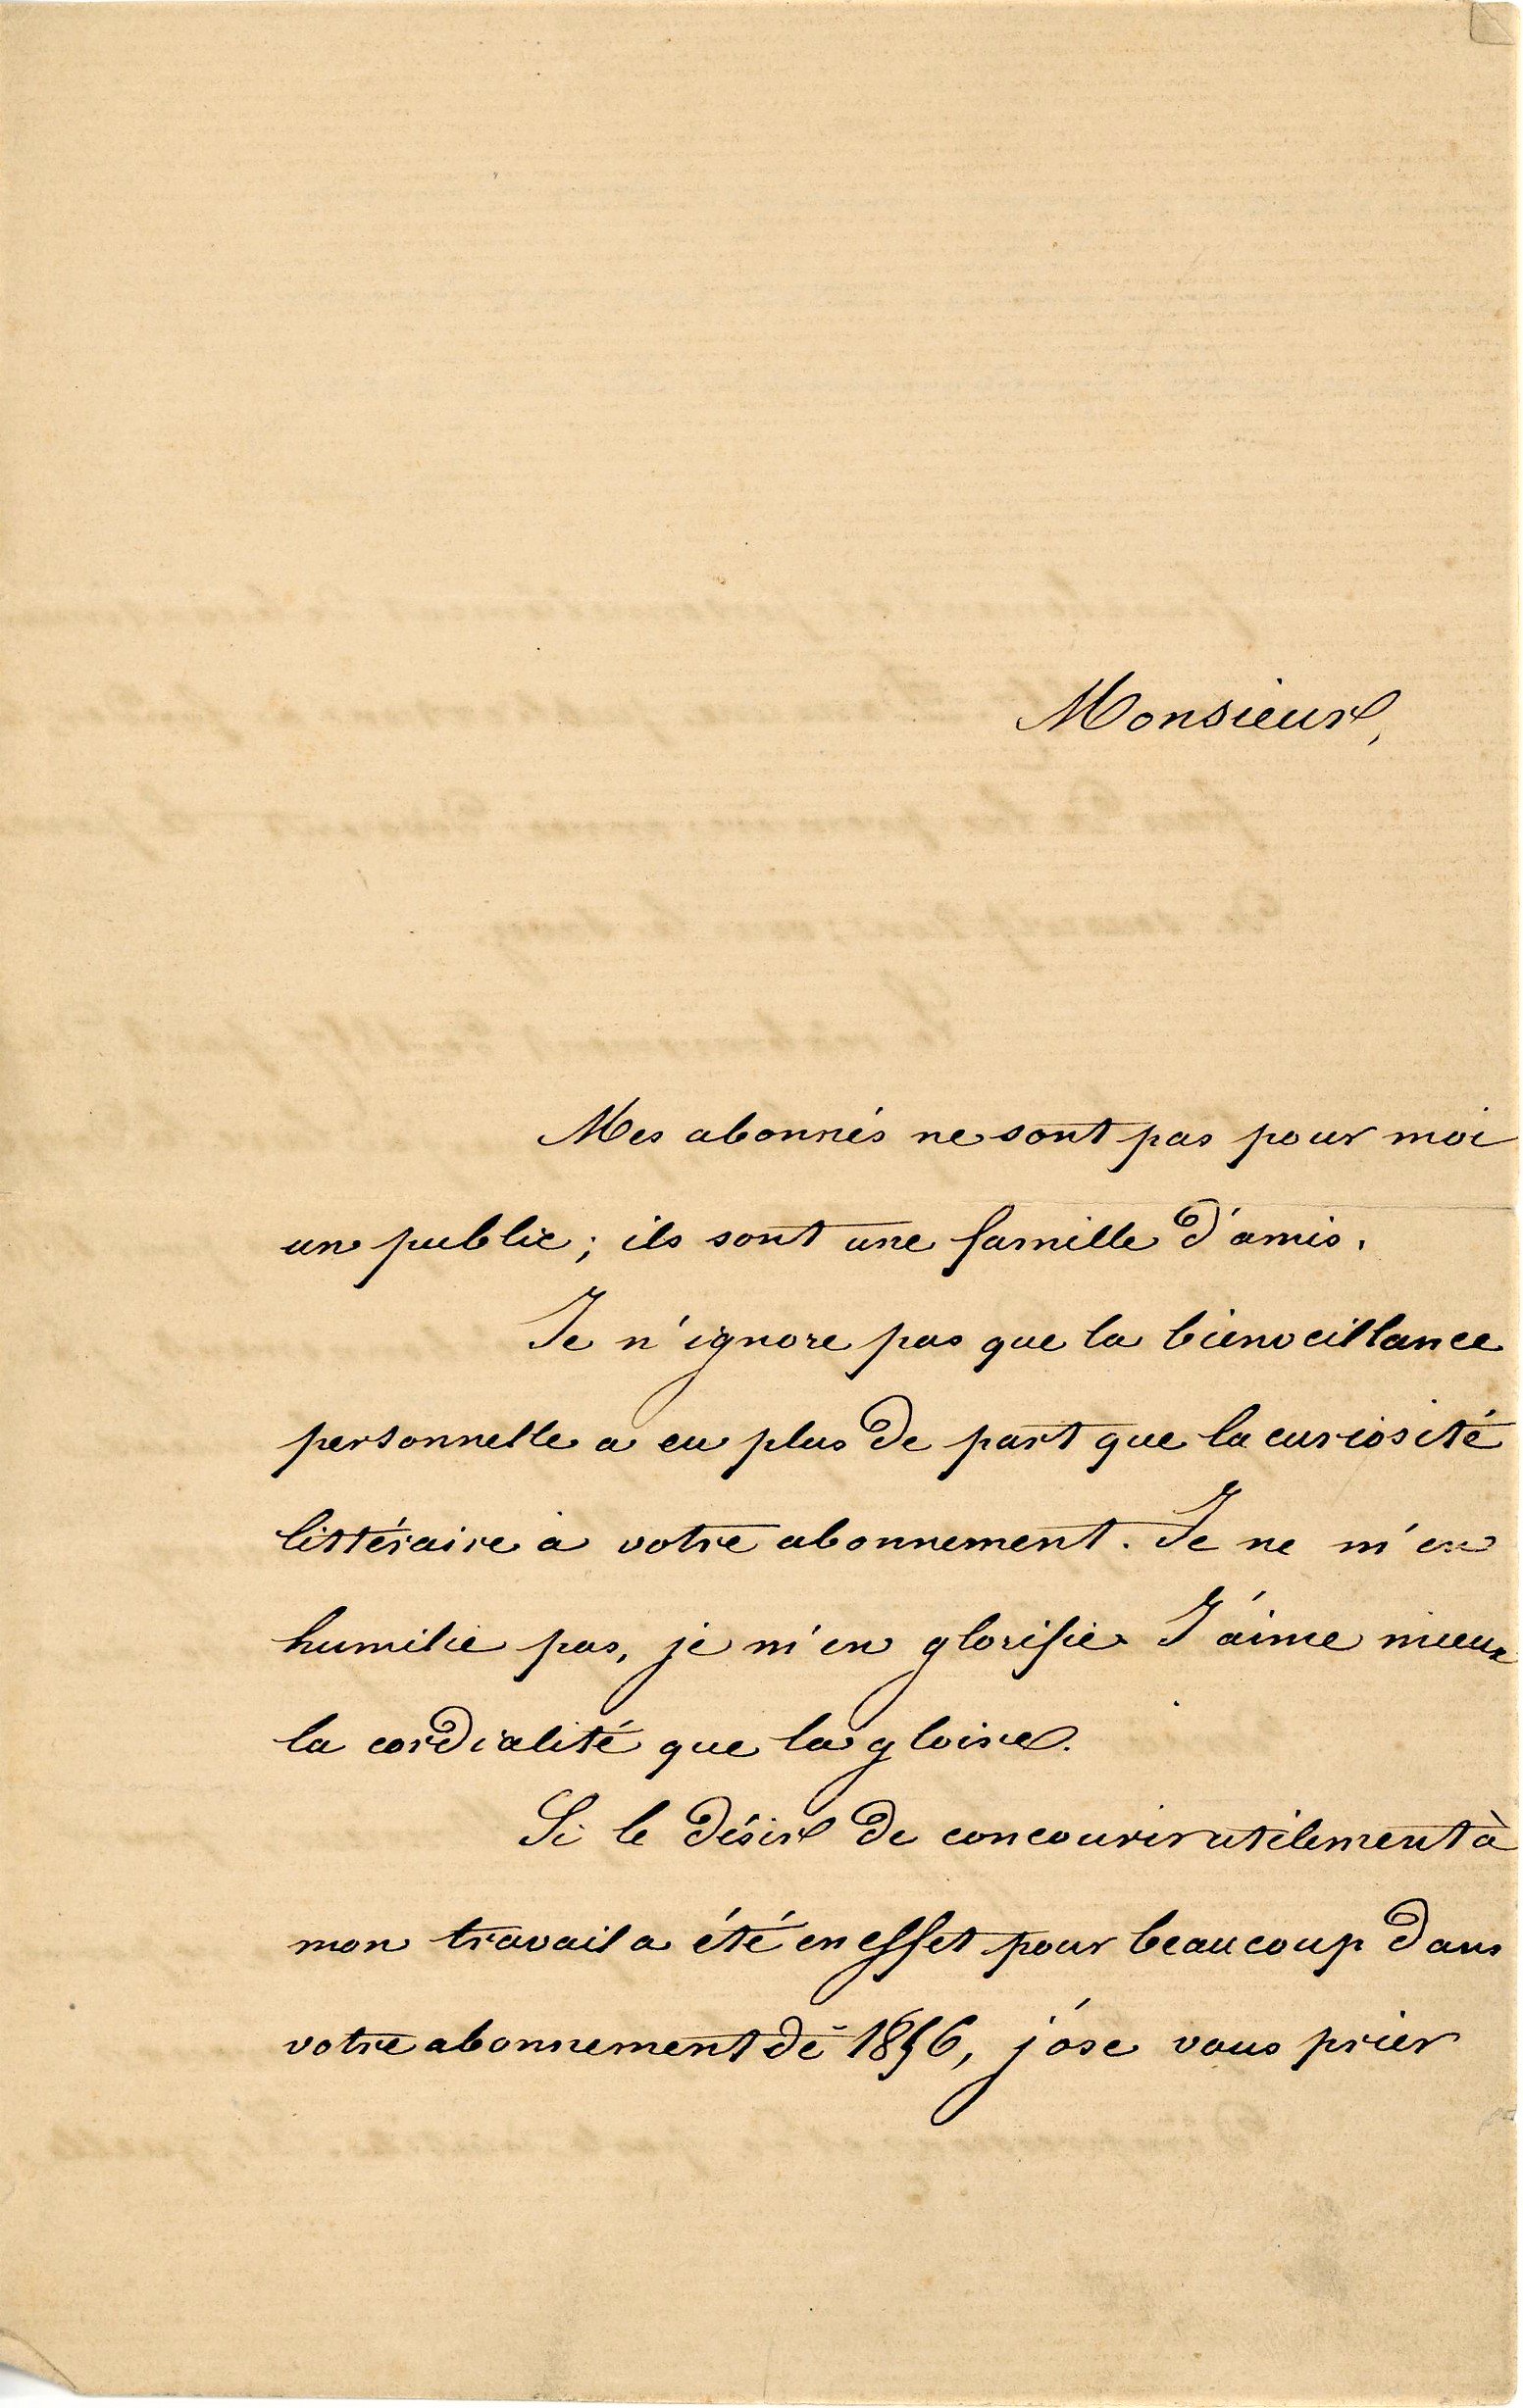 Monsieur,
Mes abonnés ne sont pas pour moi
un public ; ils sont une famille d'amis.
Je n'ignore pas que la bienveillance
personnelle a eu plus de part que la curiosité
littéraire à votre abonnement. Je ne m'en
humilie pas, je m'en glorifie. J'aime mieux
la cordialité que la gloire.
Si le désir de concourir utilement à
mon travail a été en effet pour beaucoup dans
votre abonnement de 1856, j'ose vous prier